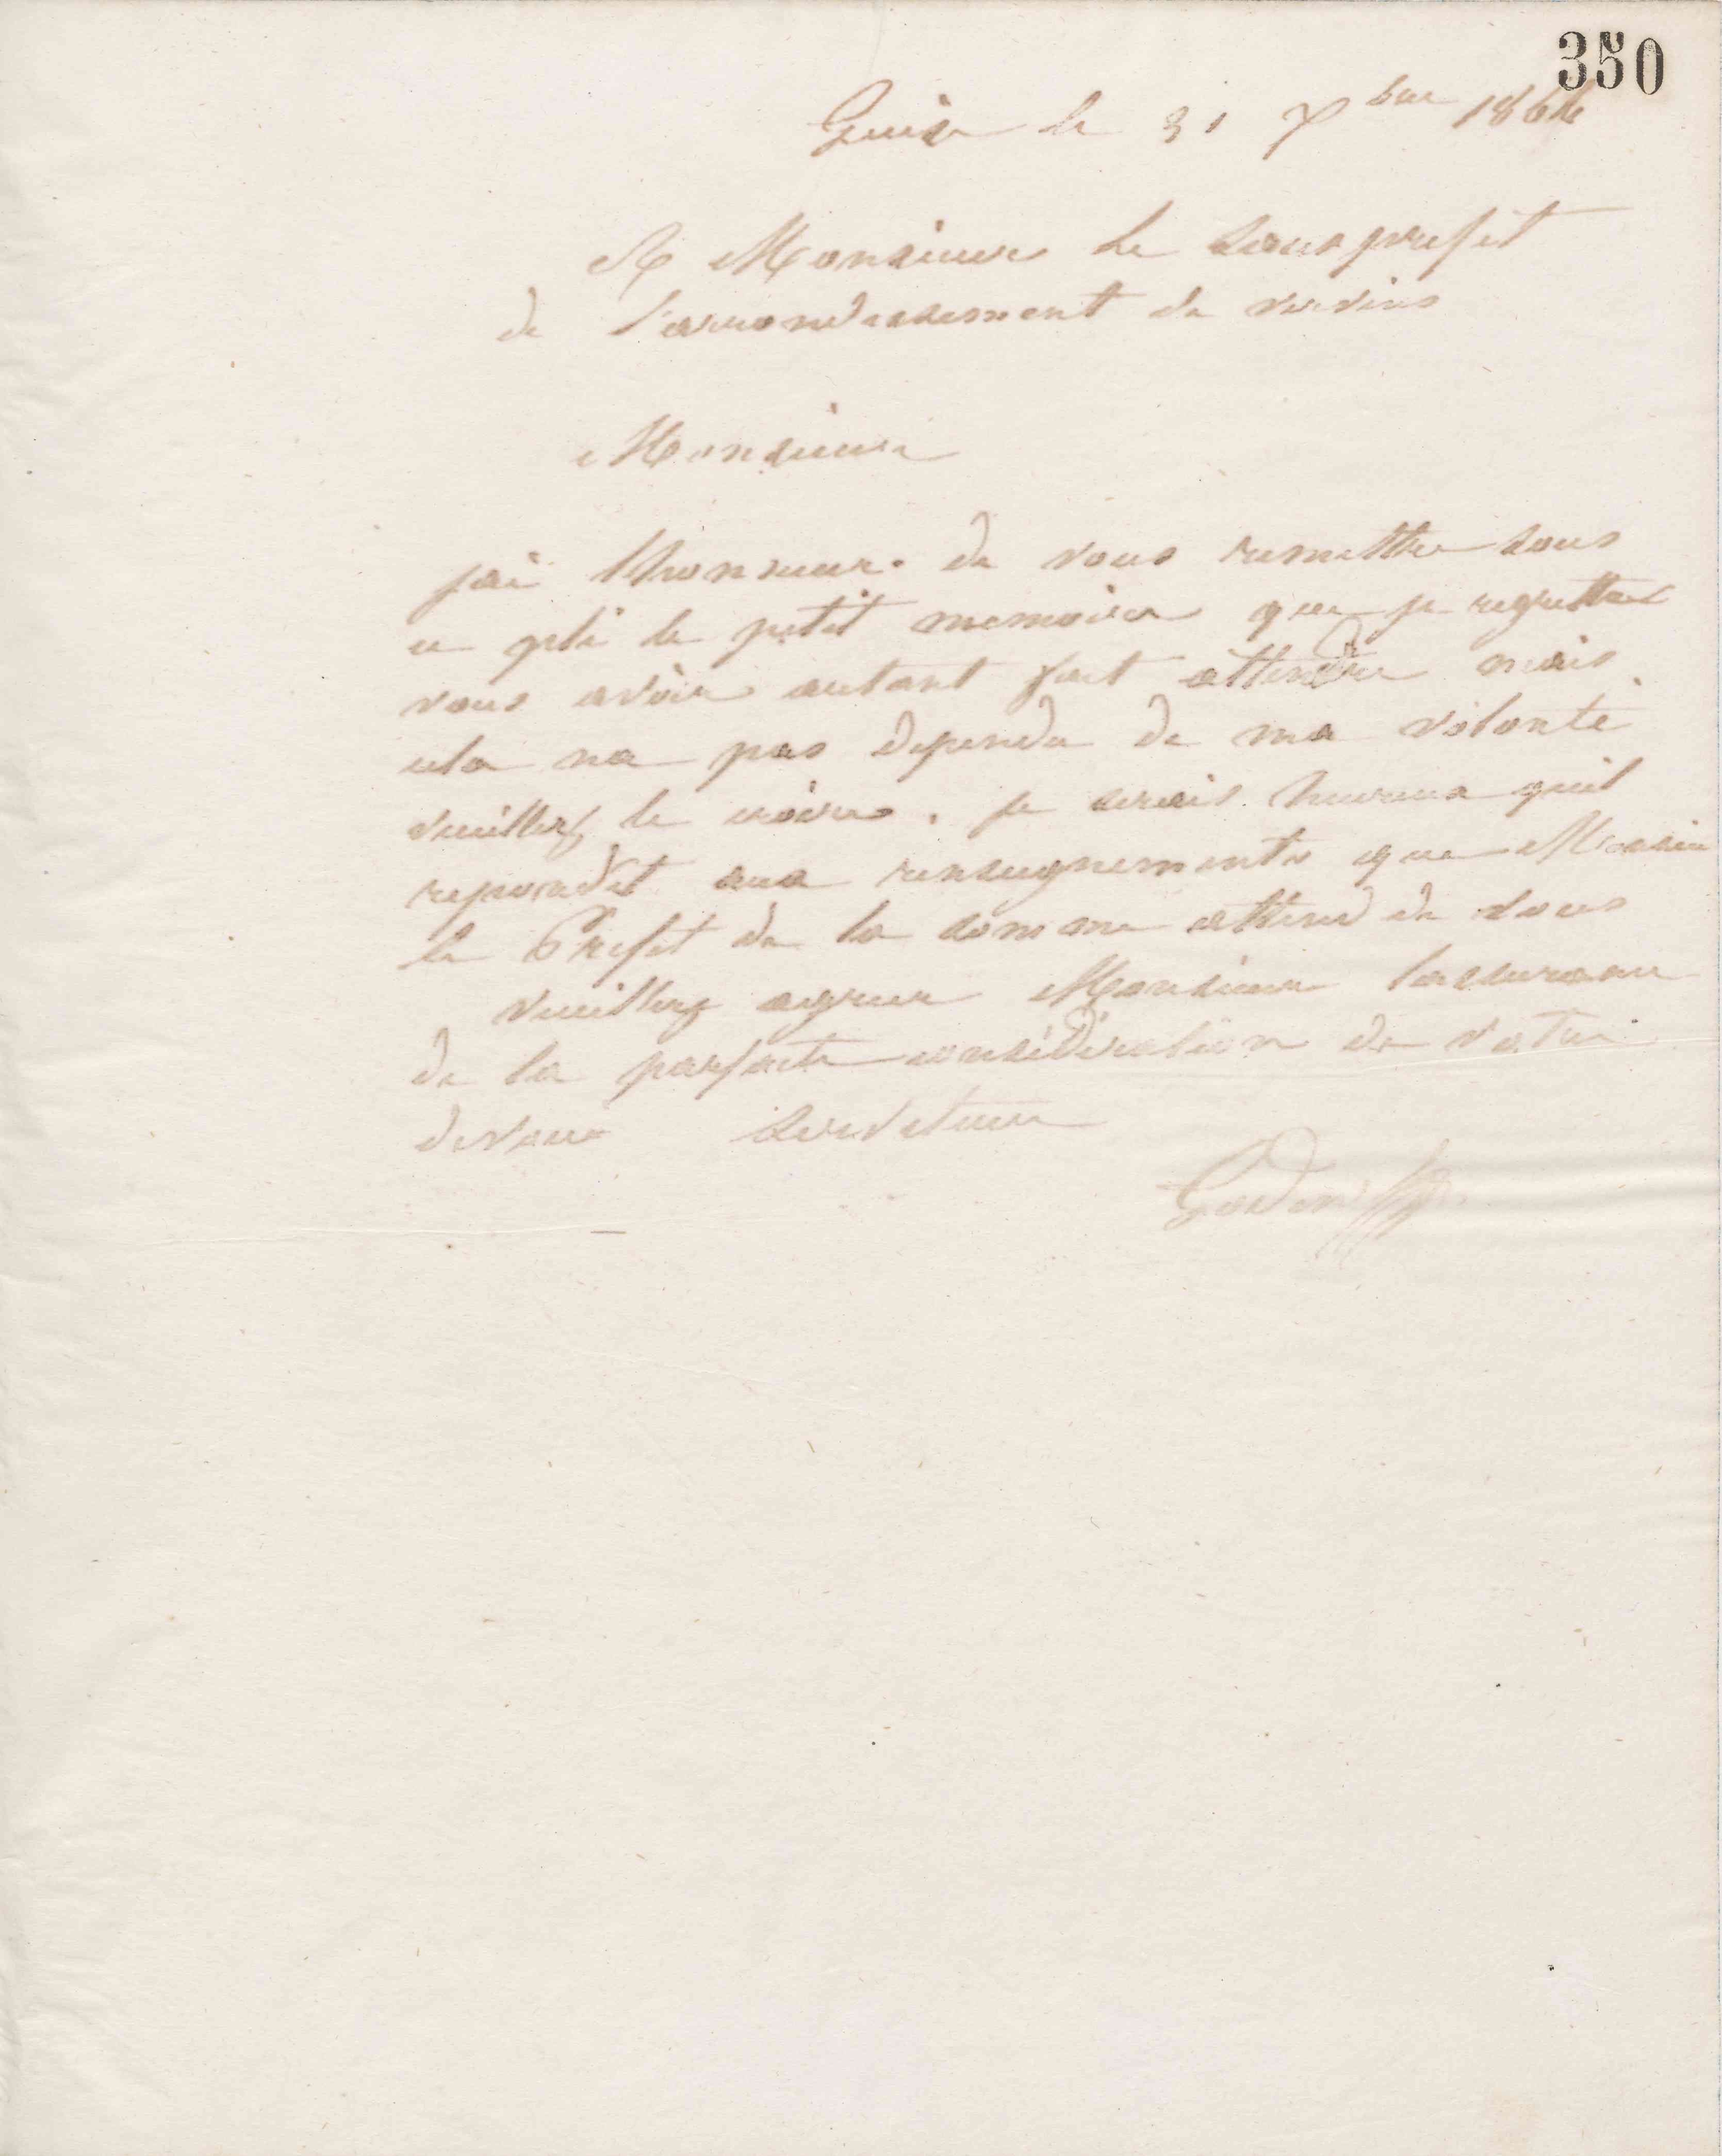 350
Guise le 31 Xbre 1866
A Monsieur le Sous prefet
de l'arrondissement de vervins
Monsieur
jai lhonneur de vous remettre sous
ce pli le petit memoire que je regrette
vous avoir autant fait attendre mais
cela na pas dependu de ma volonté
veuillez le croire. je serais heureux quil
repondit aux renseignements que Monsieur
le Préfet de la somme attend de vous
veuillez agreer Monsieur lassurance
de la parfaite considération de votre
devoué serviteur
Godin